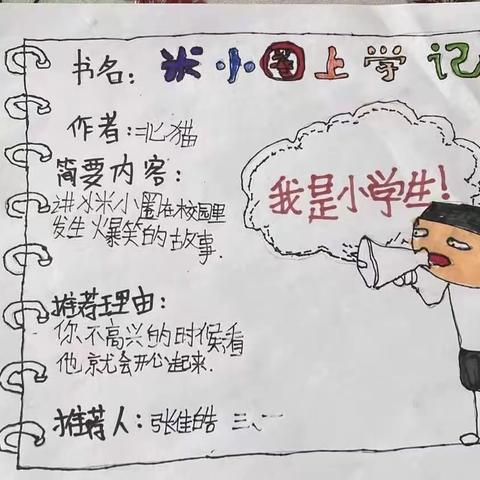 书名：米小圈上学记
作者：北猫
我是小学生！
简要内容：
讲米小圈在校园里
发生爆笑的故事.
推荐理由：
你不高兴的时候看
他就会开心起来.
推荐人：张佳皓 三、一